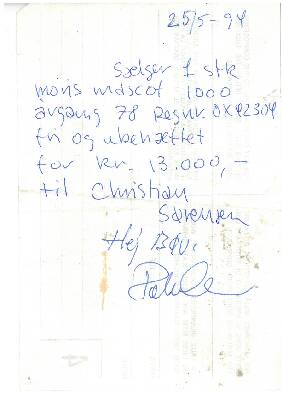 25/5-94
Sælger 1 stk
moris mascot 1000
årgang 78 Regnr. OX 42304
fri og ubehæftet
for kr. 13.000,-
til Christian
Sørensen
Hej